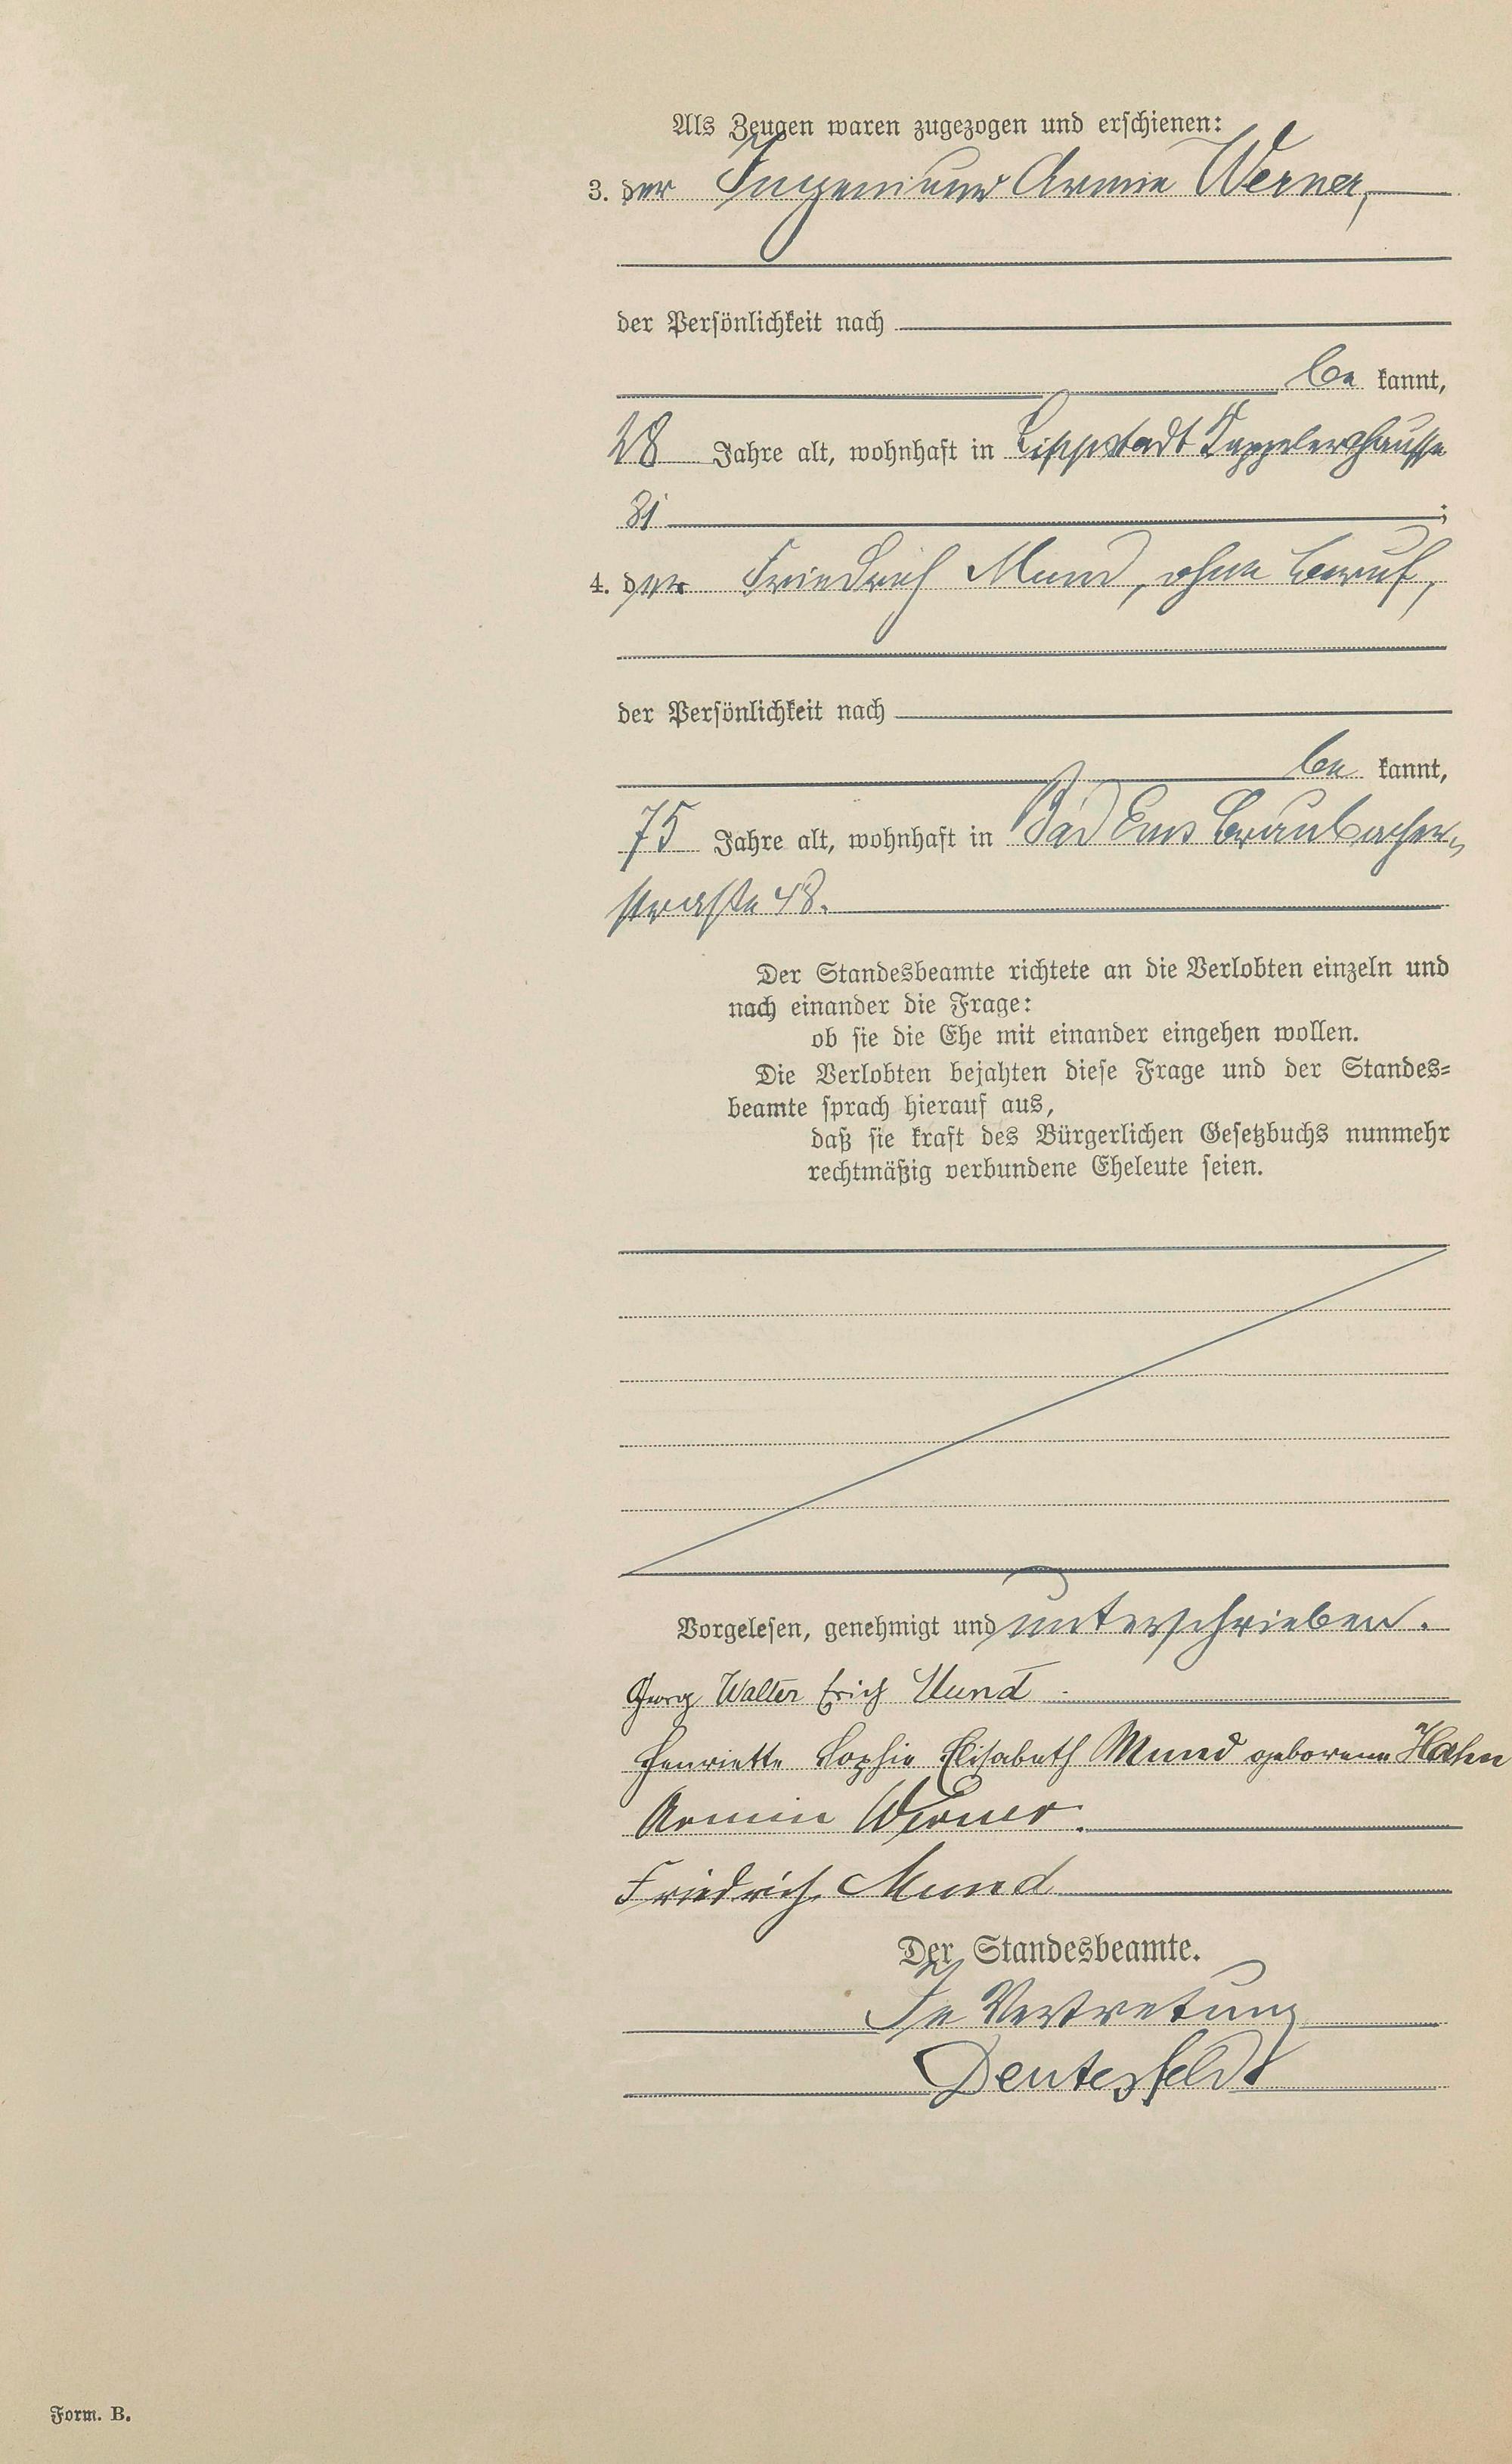 Als Zeugen waren zugezogen und erschienen:
3. der Ingenieur Armin Werner,
der Persönlichkeit nach
be kannt,
28 Jahre alt, wohnhaft in Lippstadt Cappelerchaussee
81 ;
4. der Friedrich Mund, ohne Beruf,
der Persönlichkeit nach
be kannt,
75 Jahre alt, wohnhaft in Bad Ems Braubacher-
strasse 48.
Der Standesbeamte richtete an die Verlobten einzeln und
nach einander die Frage:
ob sie die Ehe mit einander eingehen wollen.
Die Verlobten bejahten diese Frage und der Standes-
beamte sprach hierauf aus,
daß sie kraft des Bürgerlichen Gesetzbuchs nunmehr
rechtmäßig verbundene Eheleute seien.
Vorgelesen, genehmigt und unterschrieben.
Georg Walter Erich Mund
Henriette Sophie Elisabeth Mund geborene Hahn
Armin Werner.
Friedrich Mund
Der Standesbeamte.
In Vertretung
Deutesfeldt
Form. B.